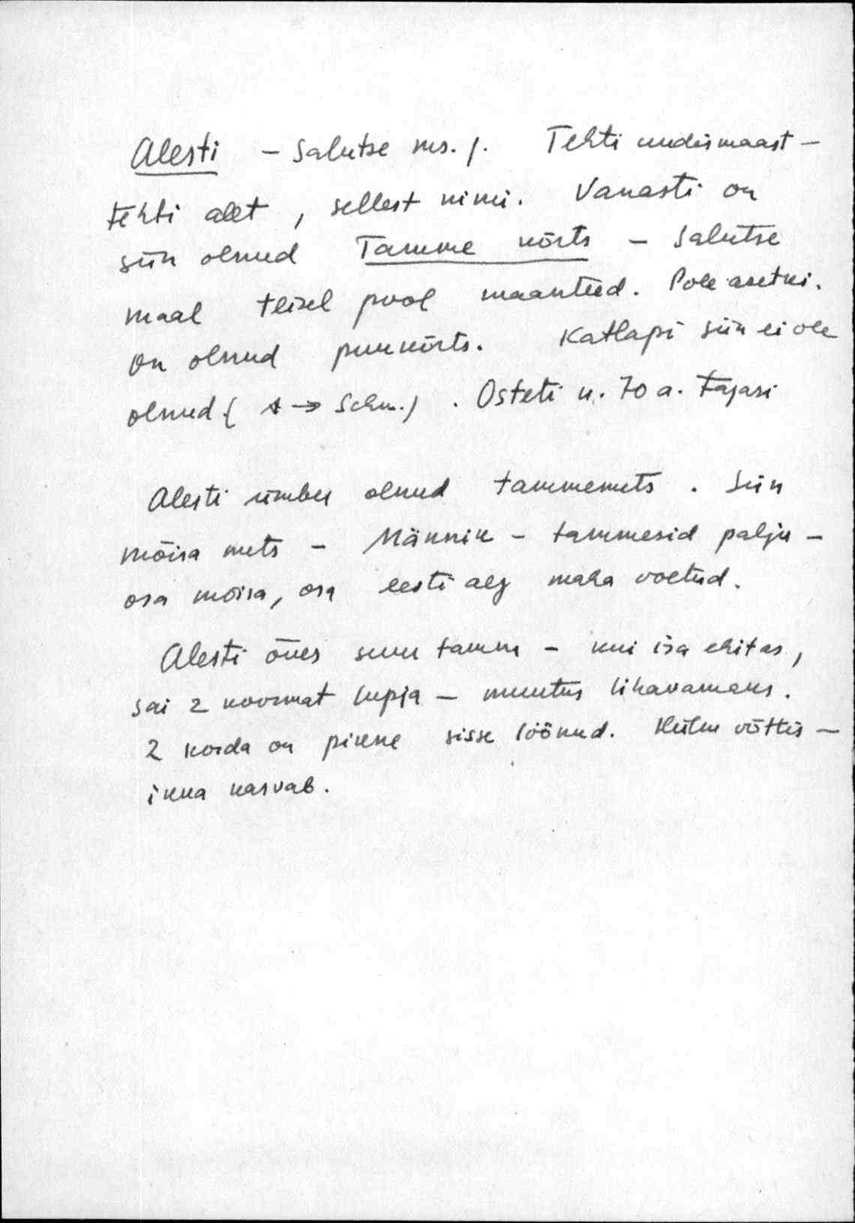 Alesti – Salutse ms. /. Tehti uudismaast –
tehti alet, sellest nimi. Vanasti on
siin olnud Tamme kõrts – Salutse
maal teisel pool maanteed. Pole asetki.
On olnud puukõrts. Katlapi siin ei ole
olnud ( A → Schu.). Osteti u. 70 a. tagasi
Alesti ümber olnud tammemets. Siin
mõisa mets – Männik – tammesid palju –
osa mõisa, osa eesti aeg maha võetud.
Alesti õues suur tamm – kui isa ehitas,
sai 2 koormat lupja – muutus lihavamaks.
2 korda on pikne sisse löönud. Külm võttis –
ikka kasvab.